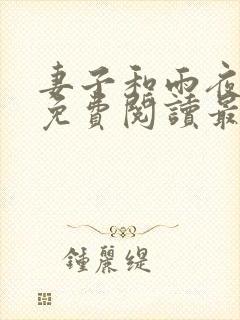 妻子和雨夜
免費閱讀最
鍾麗緹